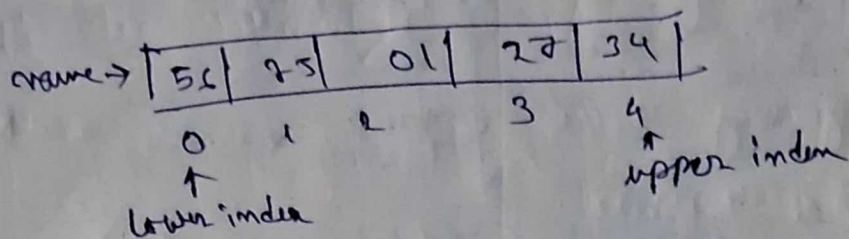 name → 56 75 01 27 34
0 1 2 3 4
lower index
upper index